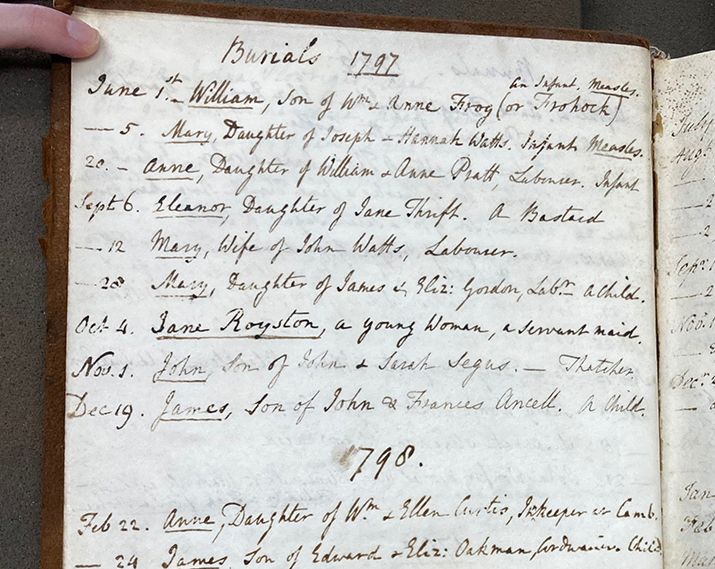 Burials 1797
An Infant. Measles.
June 1st - William, Son of Wm & Anne Frog (or Frohock)
— 5. Mary, Daughter of Joseph & Hannah Watts. Infant Measles.
20. - Anne, Daughter of William & Anne Pratt, Labourer. Infant
Sept 6. Eleanor, Daughter of Jane Thrift. A Bastard
— 12 Mary, Wife of John Watts, Labourer.
— 28 Mary, Daughter of James & Eliz: Gordon, Labr. a Child.
Oct 4. Jane Royston, a young Woman, a servant maid.
Nov. 1. John, Son of John & Sarah Segus. — Thatcher
Dec 19. James, Son of John & Frances Ancell. A Child.
1798.
Feb 22. Anne, Daughter of Wm & Ellen Curtis, Inkeeper at Camb.
— 24 James, Son of Edward & Eliz: Oakman, Cordwainer. Child
July
Augt
— 2
— 2
Sepr. 1
— 2
Nov. 1
Decr. 2
Jan
Feb
Mar